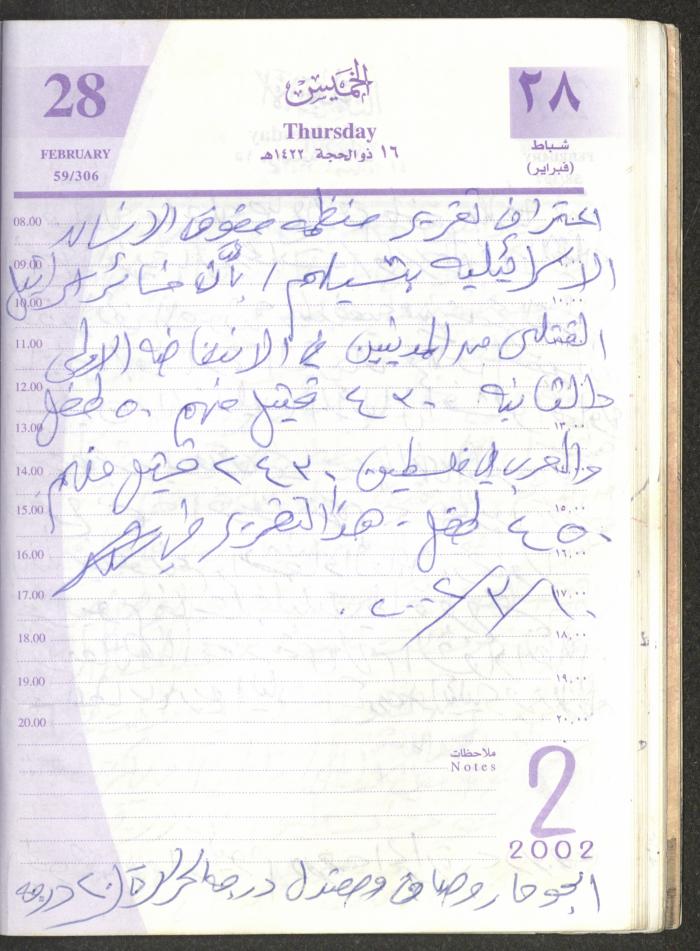 28
FEBRUARY
59/306
الخميس
Thursday
١٦ ذو الحجة ١٤٢٢هـ
٢٨
شباط
(فبراير)
08.00 اعتراف تقرير منظمة حقوق الانسان
09.00 الاسرائيليه بتسيلم / بأن خسائر اسرائيل
10.00 ١٠,٠٠
11.00 القتلى من المدنيين في الانتفاضه الاولى
12.00 والثانيه ٤٣٠ قتيل منهم ٥٠ طفل
13.00 ١٣,٠٠
14.00 والعرب الفلسطين ٢٤٣٠ قتيل منهم
15.00 ١٥,٠٠
٤٥٠ طفل - هذا التقرير في
16.00 ١٦,٠٠
17.00 ١٧,٠٠
٢٠٠٢/٣/١٠
18.00 ١٨,٠٠
19.00 ١٩,٠٠
20.00 ٢٠,٠٠
ملاحظات
Notes
2
2002
الجو حار وصافي ومعتدل درجه الحرارة ٢٠ درجه